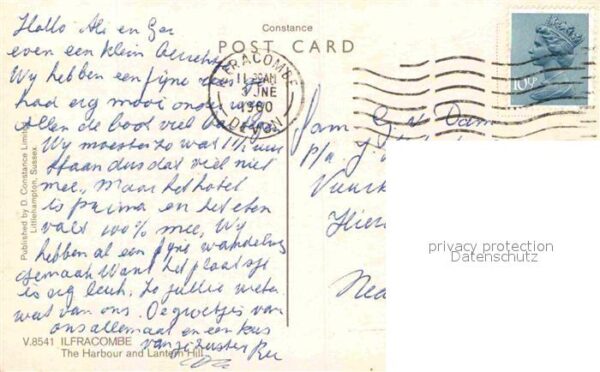 Constance
POST CARD
Hallo Ali en Ger
even een klein berichtje
Wij hebben een fijne reis
had erg mooi
Alleen de boot viel
Wij moesten zo wat 1½ uur
staan dus dat viel niet
mee, Maar het hotel
is prima en het eten
valt 100% mee, Wij
hebben al een fijne wandeling
gemaakt Want het plaatsje
is erg leuk. Zo jullie weten
wat van ons. De groetjes van
ons allemaal en een kus
van je zuster
ILFRACOMBE
11 AM
3 JNE
1980
DEVON
10½P
Fam G. v Dam
p/a J
Vuurk
Hier
Ned
privacy protection
Datenschutz
Published by D. Constance Limited,
Littlehampton, Sussex.
V.8541 ILFRACOMBE
The Harbour and Lantern Hill